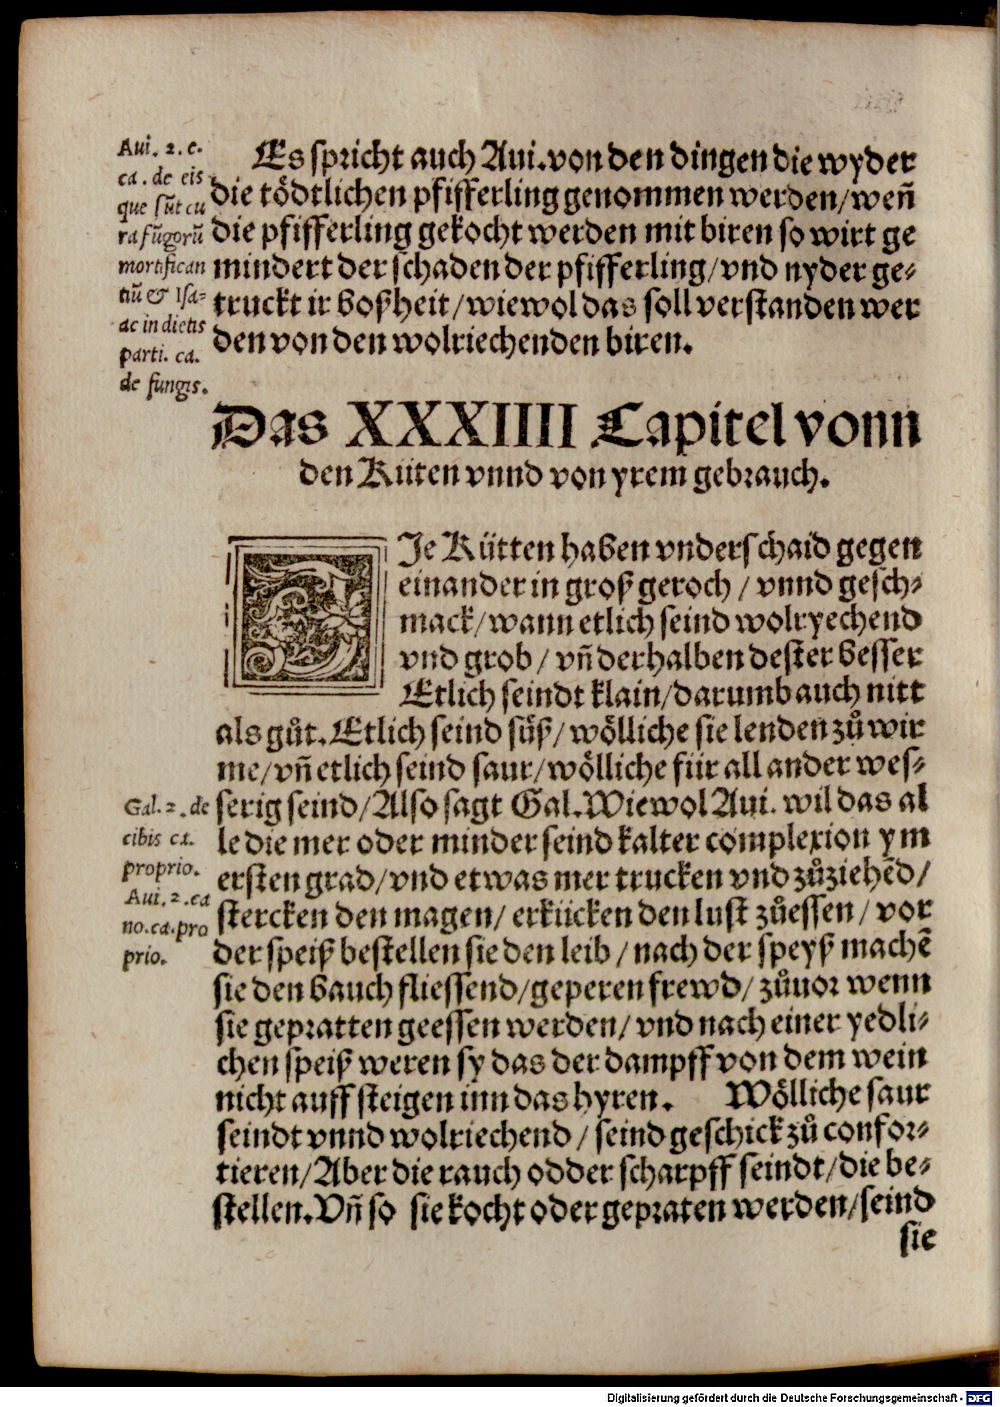 Aui. 2. c.
ca. de eis
que sūt cu
ra fūgorū
mortifican
tiū & Isa-
ac in dietis
parti. ca.
de fungis.
Es spricht auch Aui. von den dingen die wyder
die tödtlichen pfifferling genommen werden/ weñ
die pfifferling gekocht werden mit biren so wirt ge
mindert der schaden der pfifferling/ vnd nyder ge-
truckt ir boßheit/ wiewol das soll verstanden wer
den von den wolriechenden biren.
Das XXXIIII Capitel vonn
den Küten vnnd von yrem gebrauch.
DJe Kütten haben vnderschaid gegen
einander in groß geroch/ vnnd gesch-
mack/ wann etlich seind wolryechend
vnd grob/ vñ derhalben dester besser
Etlich seindt klain/ darumb auch nitt
als gůt. Etlich seind süß/ wölliche sie lenden zů wir
me/ vñ etlich seind saur/ wölliche für all ander wes-
serig seind/ Also sagt Gal. Wiewol Aui. wil das al
le die mer oder minder seind kalter complexion ym
ersten grad/ vnd etwas mer trucken vnd zůziehēd/
stercken den magen/ erkücken den lust zůessen/ vor
der speiß bestellen sie den leib/ nach der speyß machē
sie den bauch fliessend/ geperen frewd/ zůuor wenn
sie gepratten geessen werden/ vnd nach einer yedli-
chen speiß weren sy das der dampff von dem wein
nicht auff steigen inn das hyren. Wölliche saur
seindt vnnd wolriechend/ seind geschick zů confor-
tieren/ Aber die rauch odder scharpff seindt/ die be-
stellen. Vñ so sie kocht oder gepraten werden/ seind
sie
Gal. 2. de
cibis ca.
proprio.
Aui. 2. ca
no. ca. pro
prio.
Digitalisierung gefördert durch die Deutsche Forschungsgemeinschaft - DFG